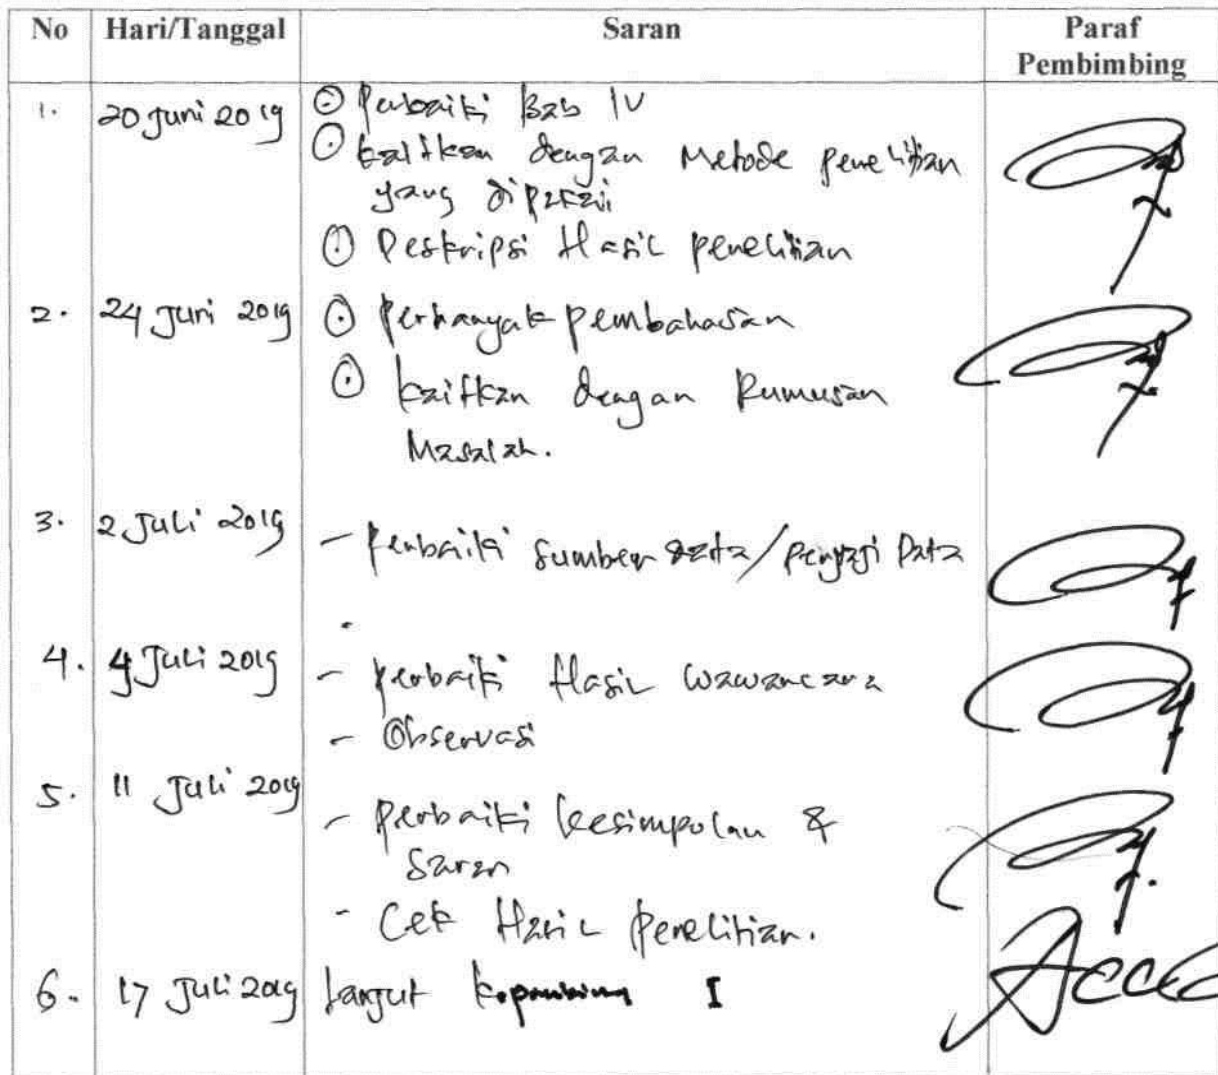 No Hari/Tanggal Saran Paraf
Pembimbing
1. 20 Juni 2019 Perbaiki Bab IV
kaitkan dengan Metode penelitian
yang dipakai
Deskripsi Hasil penelitian
2. 24 Juni 2019 Perbanyak pembahasan
kaitkan dengan Rumusan
Masalah.
3. 2 Juli 2019 - Perbaiki sumber data/penyaji Data
4. 4 Juli 2019 - perbaiki Hasil wawancara
- Observasi
5. 11 Juli 2019
- Perbaiki kesimpulan &
Saran
- Cek Hasil penelitian.
6. 17 Juli 2019 Lanjut I Acc